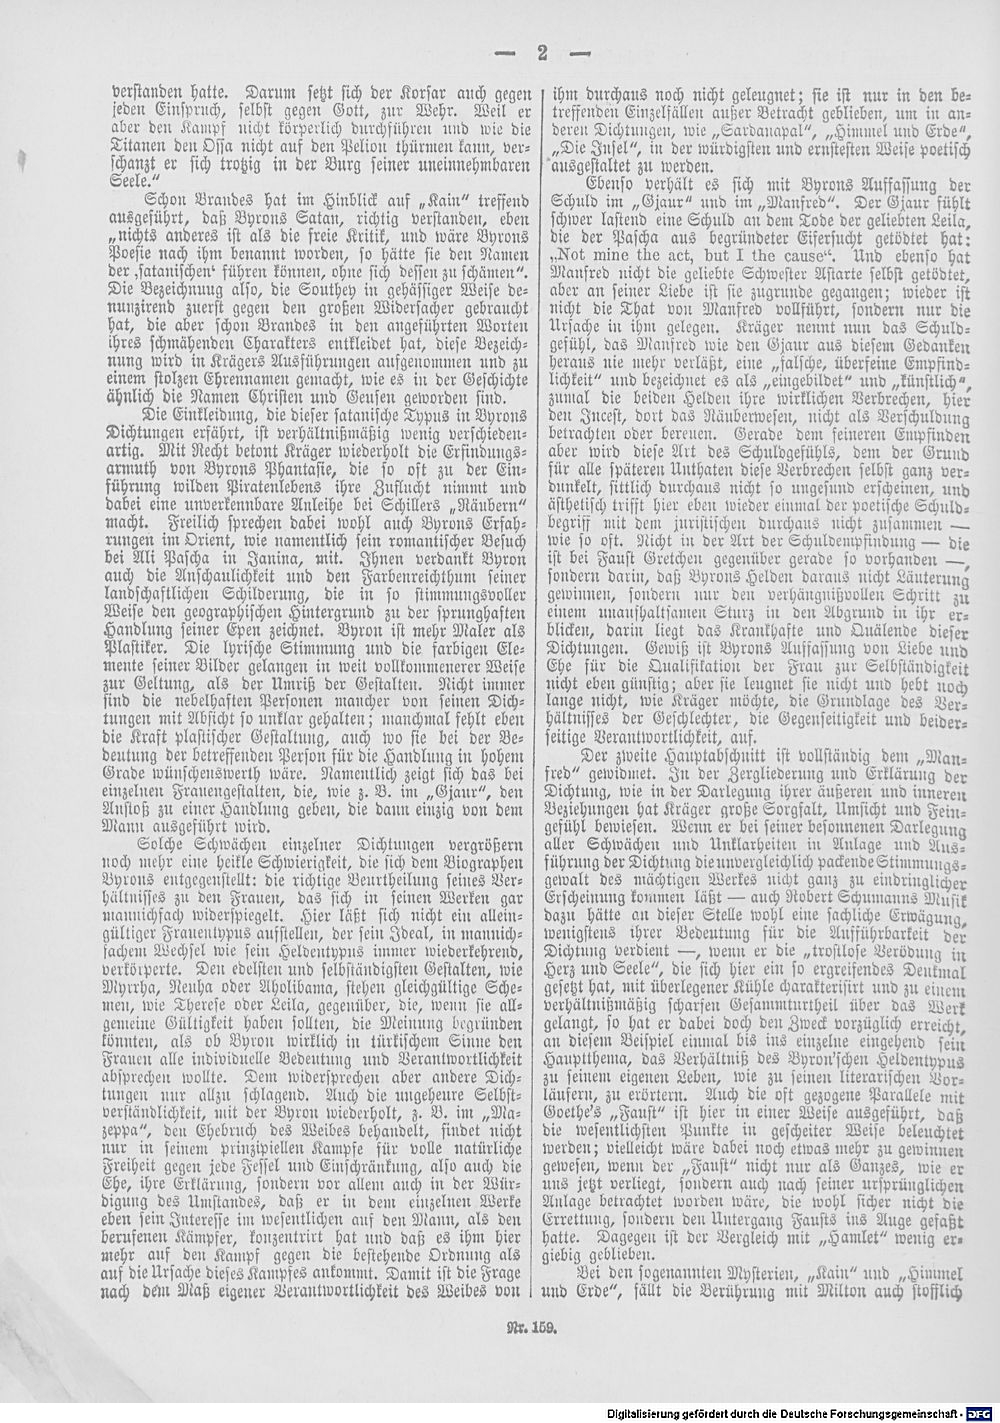 — 2 —
verstanden hatte. Darum setzt sich der Korsar auch gegen
jeden Einspruch, selbst gegen Gott, zur Wehr. Weil er
aber den Kampf nicht körperlich durchführen und wie die
Titanen den Ossa nicht auf den Pelion thürmen kann, ver-
schanzt er sich trotzig in der Burg seiner uneinnehmbaren
Seele.“
Schon Brandes hat im Hinblick auf „Kain“ treffend
ausgeführt, daß Byrons Satan, richtig verstanden, eben
„nichts anderes ist als die freie Kritik, und wäre Byrons
Poesie nach ihm benannt worden, so hätte sie den Namen
der ‚satanischen‘ führen können, ohne sich dessen zu schämen“.
Die Bezeichnung also, die Southey in gehässiger Weise de-
nunzirend zuerst gegen den großen Widersacher gebraucht
hat, die aber schon Brandes in den angeführten Worten
ihres schmähenden Charakters entkleidet hat, diese Bezeich-
nung wird in Krägers Ausführungen aufgenommen und zu
einem stolzen Ehrennamen gemacht, wie es in der Geschichte
ähnlich die Namen Christen und Geusen geworden sind.
Die Einkleidung, die dieser satanische Typus in Byrons
Dichtungen erfährt, ist verhältnißmäßig wenig verschieden-
artig. Mit Recht betont Kräger wiederholt die Erfindungs-
armuth von Byrons Phantasie, die so oft zu der Ein-
führung wilden Piratenlebens ihre Zuflucht nimmt und
dabei eine unverkennbare Anleihe bei Schillers „Räubern“
macht. Freilich sprechen dabei wohl auch Byrons Erfah-
rungen im Orient, wie namentlich sein romantischer Besuch
bei Ali Pascha in Janina, mit. Ihnen verdankt Byron
auch die Anschaulichkeit und den Farbenreichthum seiner
landschaftlichen Schilderung, die in so stimmungsvoller
Weise den geographischen Hintergrund zu der sprunghaften
Handlung seiner Epen zeichnet. Byron ist mehr Maler als
Plastiker. Die lyrische Stimmung und die farbigen Ele-
mente seiner Bilder gelangen in weit vollkommenerer Weise
zur Geltung, als der Umriß der Gestalten. Nicht immer
sind die nebelhaften Personen mancher von seinen Dich-
tungen mit Absicht so unklar gehalten; manchmal fehlt eben
die Kraft plastischer Gestaltung, auch wo sie bei der Be-
deutung der betreffenden Person für die Handlung in hohem
Grade wünschenswerth wäre. Namentlich zeigt sich das bei
einzelnen Frauengestalten, die, wie z. B. im „Gjaur“, den
Anstoß zu einer Handlung geben, die dann einzig von dem
Mann ausgeführt wird.
Solche Schwächen einzelner Dichtungen vergrößern
noch mehr eine heikle Schwierigkeit, die sich dem Biographen
Byrons entgegenstellt: die richtige Beurtheilung seines Ver-
hältnisses zu den Frauen, das sich in seinen Werken gar
mannichfach widerspiegelt. Hier läßt sich nicht ein allein-
gültiger Frauentypus aufstellen, der sein Ideal, in mannich-
fachem Wechsel wie sein Heldentypus immer wiederkehrend,
verkörperte. Den edelsten und selbständigsten Gestalten, wie
Myrrha, Neuha oder Aholibama, stehen gleichgültige Sche-
men, wie Therese oder Leila, gegenüber, die, wenn sie all-
gemeine Gültigkeit haben sollten, die Meinung begründen
könnten, als ob Byron wirklich in türkischem Sinne den
Frauen alle individuelle Bedeutung und Verantwortlichkeit
absprechen wollte. Dem widersprechen aber andere Dich-
tungen nur allzu schlagend. Auch die ungeheure Selbst-
verständlichkeit, mit der Byron wiederholt, z. B. im „Ma-
zeppa“, den Ehebruch des Weibes behandelt, findet nicht
nur in seinem prinzipiellen Kampfe für volle natürliche
Freiheit gegen jede Fessel und Einschränkung, also auch die
Ehe, ihre Erklärung, sondern vor allem auch in der Wür-
digung des Umstandes, daß er in dem einzelnen Werke
eben sein Interesse im wesentlichen auf den Mann, als den
berufenen Kämpfer, konzentrirt hat und daß es ihm hier
mehr auf den Kampf gegen die bestehende Ordnung als
auf die Ursache dieses Kampfes ankommt. Damit ist die Frage
nach dem Maß eigener Verantwortlichkeit des Weibes von
ihm durchaus noch nicht geleugnet; sie ist nur in den be-
treffenden Einzelfällen außer Betracht geblieben, um in an-
deren Dichtungen, wie „Sardanapal“, „Himmel und Erde“,
„Die Insel“, in der würdigsten und ernstesten Weise poetisch
ausgestaltet zu werden.
Ebenso verhält es sich mit Byrons Auffassung der
Schuld im „Gjaur“ und im „Manfred“. Der Gjaur fühlt
schwer lastend eine Schuld an dem Tode der geliebten Leila,
die der Pascha aus begründeter Eifersucht getödtet hat:
„Not mine the act, but I the cause“. Und ebenso hat
Manfred nicht die geliebte Schwester Astarte selbst getödtet,
aber an seiner Liebe ist sie zugrunde gegangen; wieder ist
nicht die That von Manfred vollführt, sondern nur die
Ursache in ihm gelegen. Kräger nennt nun das Schuld-
gefühl, das Manfred wie den Gjaur aus diesem Gedanken
heraus nie mehr verläßt, eine „falsche, überfeine Empfind-
lichkeit“ und bezeichnet es als „eingebildet“ und „künstlich“,
zumal die beiden Helden ihre wirklichen Verbrechen, hier
den Incest, dort das Räuberwesen, nicht als Verschuldung
betrachten oder bereuen. Gerade dem feineren Empfinden
aber wird diese Art des Schuldgefühls, dem der Grund
für alle späteren Unthaten diese Verbrechen selbst ganz ver-
dunkelt, sittlich durchaus nicht so ungesund erscheinen, und
ästhetisch trifft hier eben wieder einmal der poetische Schuld-
begriff mit dem juristischen durchaus nicht zusammen —
wie so oft. Nicht in der Art der Schuldempfindung — die
ist bei Faust Gretchen gegenüber gerade so vorhanden —,
sondern darin, daß Byrons Helden daraus nicht Läuterung
gewinnen, sondern nur den verhängnißvollen Schritt zu
einem unaufhaltsamen Sturz in den Abgrund in ihr er-
blicken, darin liegt das Krankhafte und Quälende dieser
Dichtungen. Gewiß ist Byrons Auffassung von Liebe und
Ehe für die Qualifikation der Frau zur Selbständigkeit
nicht eben günstig; aber sie leugnet sie nicht und hebt noch
lange nicht, wie Kräger möchte, die Grundlage des Ver-
hältnisses der Geschlechter, die Gegenseitigkeit und beider-
seitige Verantwortlichkeit, auf.
Der zweite Hauptabschnitt ist vollständig dem „Man-
fred“ gewidmet. In der Zergliederung und Erklärung der
Dichtung, wie in der Darlegung ihrer äußeren und inneren
Beziehungen hat Kräger große Sorgfalt, Umsicht und Fein-
gefühl bewiesen. Wenn er bei seiner besonnenen Darlegung
aller Schwächen und Unklarheiten in Anlage und Aus-
führung der Dichtung die unvergleichlich packende Stimmungs-
gewalt des mächtigen Werkes nicht ganz zu eindringlicher
Erscheinung kommen läßt — auch Robert Schumanns Musik
dazu hätte an dieser Stelle wohl eine sachliche Erwägung,
wenigstens ihrer Bedeutung für die Aufführbarkeit der
Dichtung verdient —, wenn er die „trostlose Verödung in
Herz und Seele“, die sich hier ein so ergreifendes Denkmal
gesetzt hat, mit überlegener Kühle charakterisirt und zu einem
verhältnißmäßig scharfen Gesammturtheil über das Werk
gelangt, so hat er dabei doch den Zweck vorzüglich erreicht,
an diesem Beispiel einmal bis ins einzelne eingehend sein
Hauptthema, das Verhältniß des Byron'schen Heldentypus
zu seinem eigenen Leben, wie zu seinen literarischen Vor-
läufern, zu erörtern. Auch die oft gezogene Parallele mit
Goethe's „Faust“ ist hier in einer Weise ausgeführt, daß
die wesentlichsten Punkte in gescheiter Weise beleuchtet
werden; vielleicht wäre dabei noch etwas mehr zu gewinnen
gewesen, wenn der „Faust“ nicht nur als Ganzes, wie er
uns jetzt verliegt, sondern auch nach seiner ursprünglichen
Anlage betrachtet worden wäre, die wohl sicher nicht die
Errettung, sondern den Untergang Fausts ins Auge gefaßt
hatte. Dagegen ist der Vergleich mit „Hamlet“ wenig er-
giebig geblieben.
Bei den sogenannten Mysterien, „Kain“ und „Himmel
und Erde“, fällt die Berührung mit Milton auch stofflich
Nr. 159.
Digitalisierung gefördert durch die Deutsche Forschungsgemeinschaft - DFG